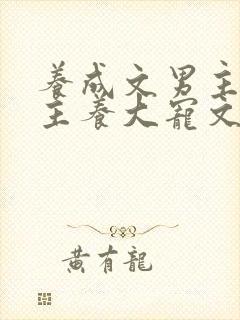 養成文男主
主養大寵文
黄有龍